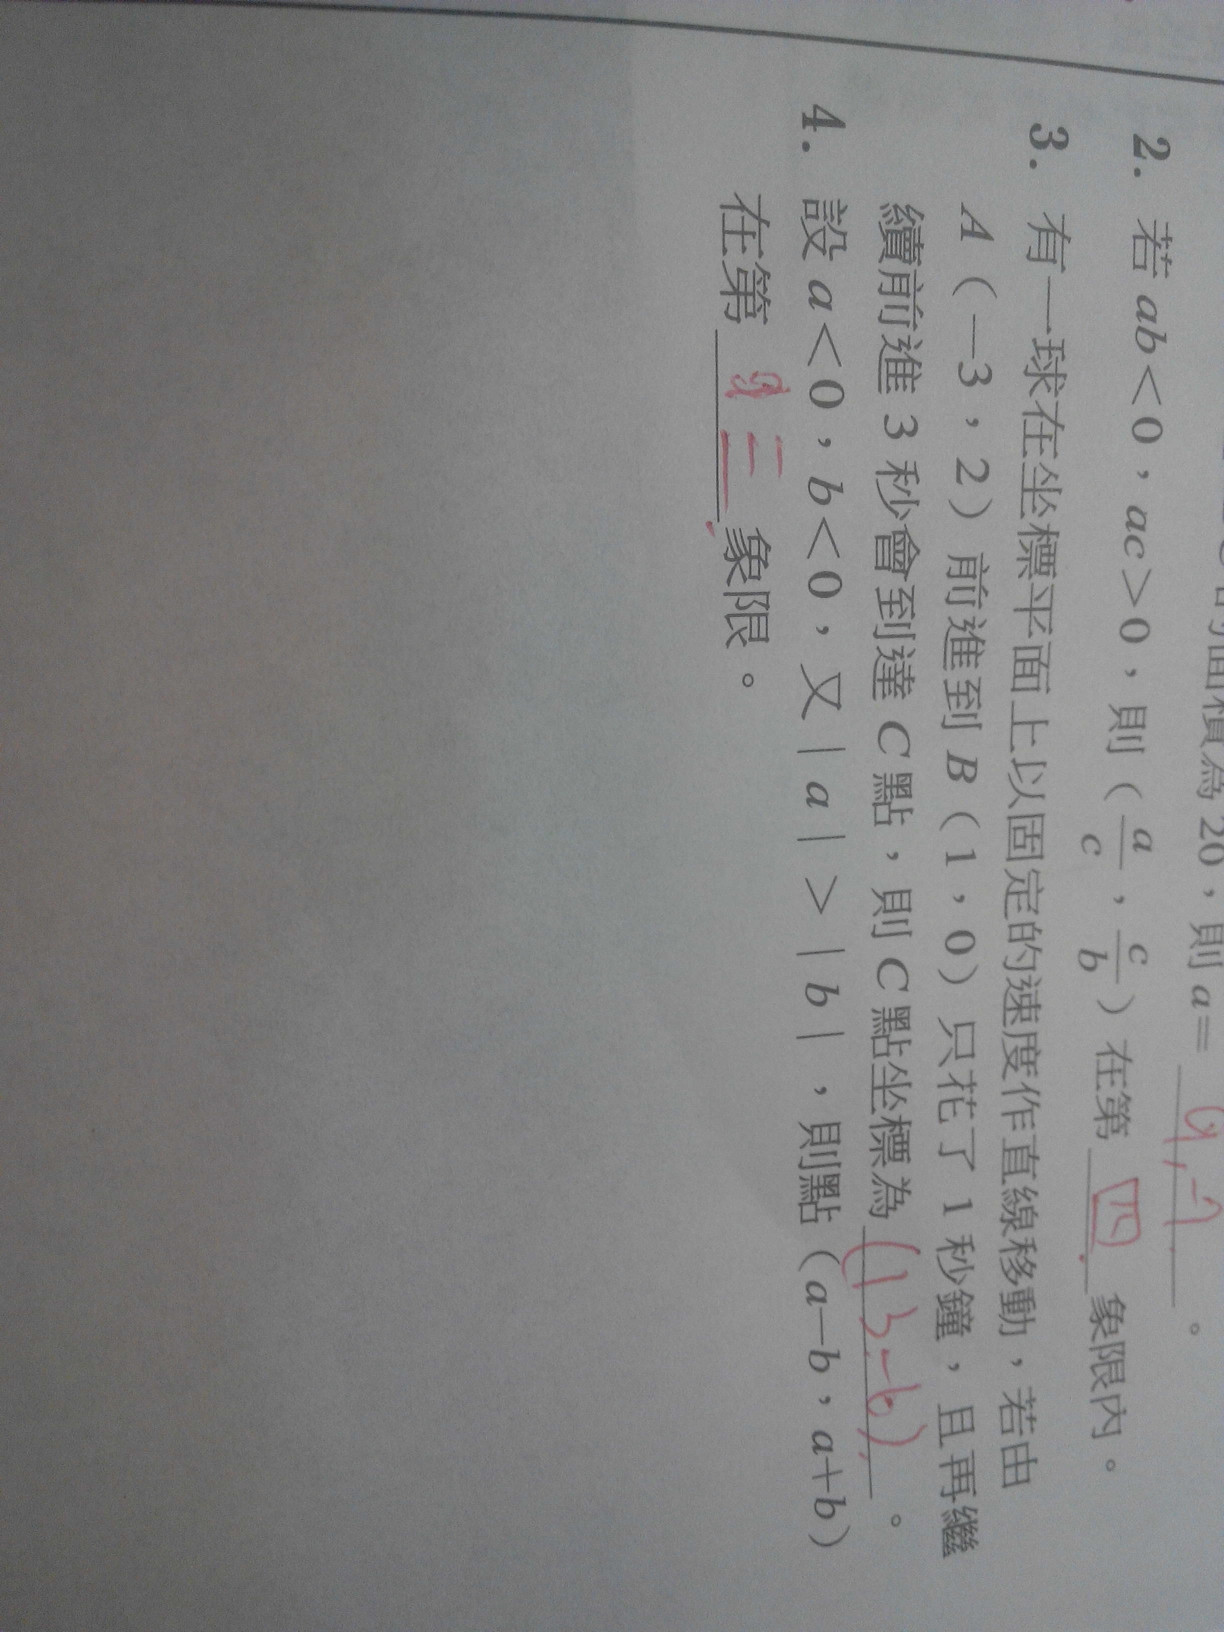 的面積為 20，則 a＝ 。
2. 若 ab＜0，ac＞0，則（a/c，c/b）在第 四 象限內。
3. 有一球在坐標平面上以固定的速度作直線移動，若由
A（－3，2）前進到 B（1，0）只花了 1 秒鐘，且再繼
續前進 3 秒會到達 C 點，則 C 點坐標為 (13-6) 。
4. 設 a＜0，b＜0，又｜a｜＞｜b｜，則點（a－b，a＋b）
在第 三 象限。